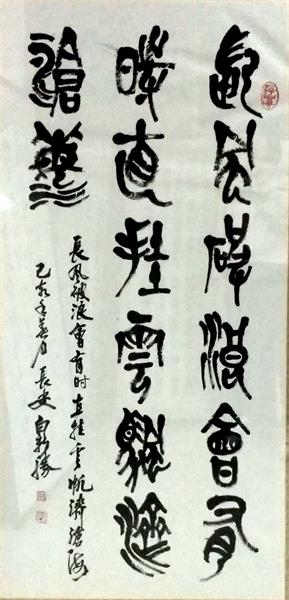 長風破浪會有
時直挂雲帆濟
滄海
長風破浪會有时直挂云帆濟滄海
亥年春月長安白